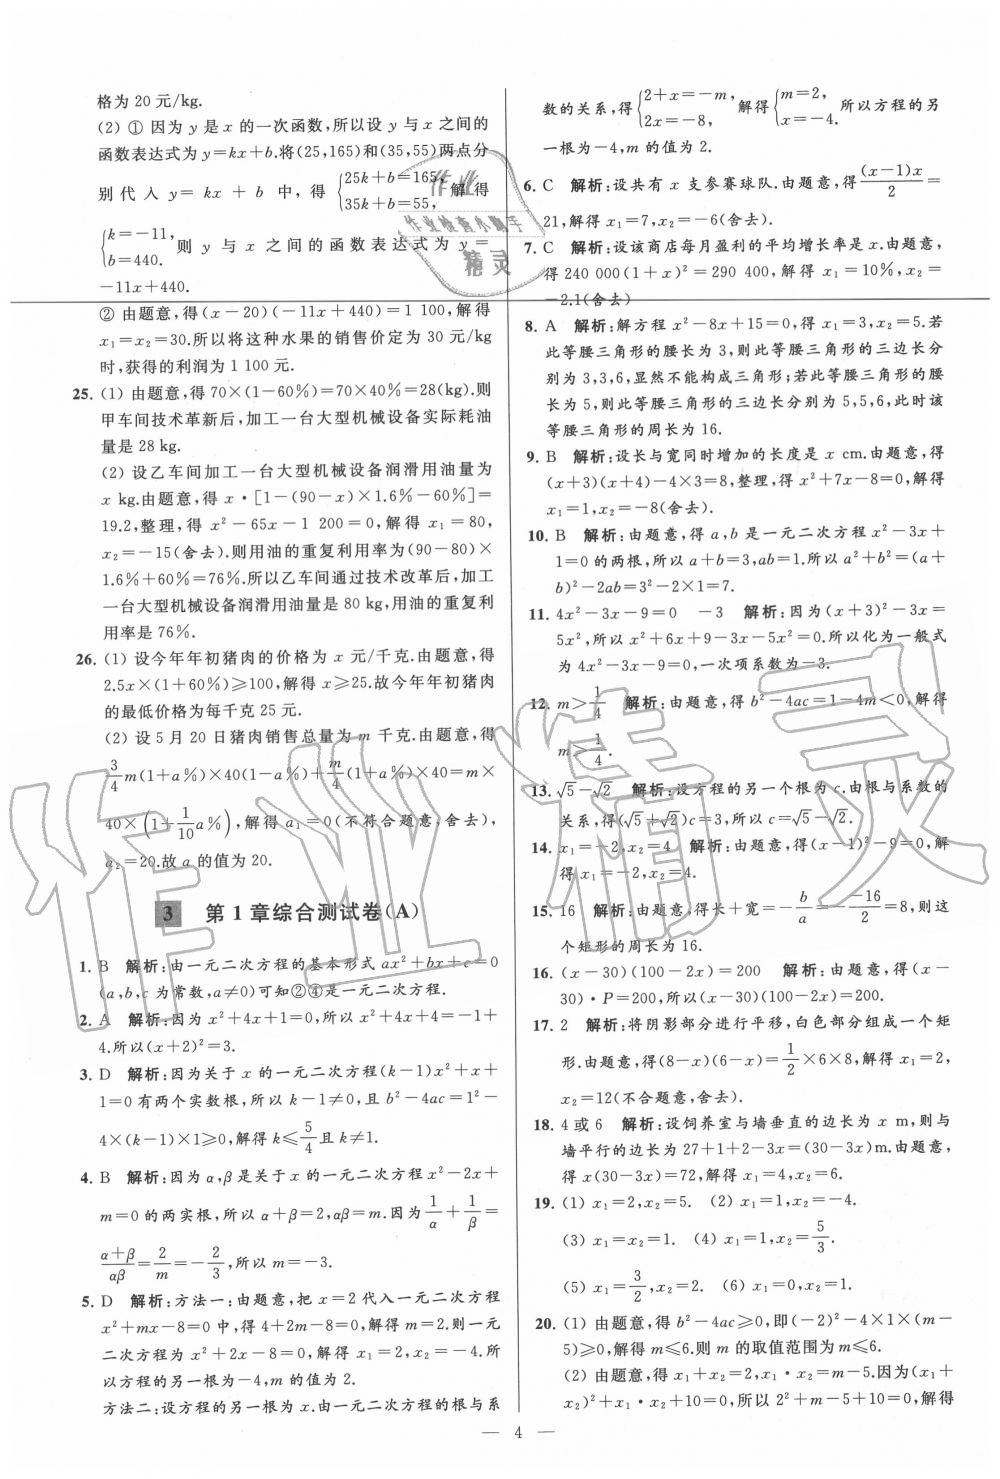 格为 20 元/kg.
(2) ① 因为 y 是 x 的一次函数,所以设 y 与 x 之间的
函数表达式为 y=kx+b.将(25,165)和(35,55)两点分
别代入 y= kx + b 中, 得 {25k+b=165, 35k+b=55, 解得
{k=-11, b=440. 则 y 与 x 之间的函数表达式为 y=
-11x+440.
② 由题意,得(x-20)(-11x+440)=1 100,解得
x₁=x₂=30.所以将这种水果的销售价定为 30 元/kg
时,获得的利润为 1 100 元.
25. (1) 由题意,得 70×(1-60%)=70×40%=28(kg).则
甲车间技术革新后,加工一台大型机械设备实际耗油
量是 28 kg.
(2) 设乙车间加工一台大型机械设备润滑用油量为
x kg.由题意,得 x·[1-(90-x)×1.6%-60%]=
19.2,整理,得 x²-65x-1 200=0,解得 x₁=80,
x₂=-15(舍去).则用油的重复利用率为(90-80)×
1.6%+60%=76%.所以乙车间通过技术改革后,加工
一台大型机械设备润滑用油量是 80 kg,用油的重复利
用率是 76%.
26. (1) 设今年年初猪肉的价格为 x 元/千克.由题意,得
2.5x×(1+60%)≥100,解得 x≥25.故今年年初猪肉
的最低价格为每千克 25 元.
(2) 设 5 月 20 日猪肉销售总量为 m 千克.由题意,得
3/4 m(1+a%)×40(1-a%)+m/4(1+a%)×40=m×
40×(1+1/10 a%),解得 a₁=0(不符合题意,舍去),
a₂=20.故 a 的值为 20.
3 第 1 章综合测试卷(A)
1. B 解析:由一元二次方程的基本形式 ax²+bx+c=0
(a,b,c 为常数,a≠0)可知②④是一元二次方程.
2. A 解析:因为 x²+4x+1=0,所以 x²+4x+4=-1+
4.所以(x+2)²=3.
3. D 解析:因为关于 x 的一元二次方程(k-1)x²+x+
1=0 有两个实数根,所以 k-1≠0,且 b²-4ac=1²-
4×(k-1)×1≥0,解得 k≤5/4 且 k≠1.
4. B 解析:因为 α,β 是关于 x 的一元二次方程 x²-2x+
m=0 的两实根,所以 α+β=2,αβ=m.因为 1/α+1/β=
(α+β)/αβ=2/m=-2/3,所以 m=-3.
5. D 解析:方法一:由题意,把 x=2 代入一元二次方程
x²+mx-8=0,得 4+2m-8=0,解得 m=2.则一元
二次方程为 x²+2x-8=0,解得 x₁=2,x₂=-4.所
以方程的另一根为-4,m 的值为 2.
方法二:设方程的另一根为 x.由一元二次方程的根与系
数的关系,得 {2+x=-m, 2x=-8, 解得 {m=2, x=-4. 所以方程的另
一根为-4,m 的值为 2.
6. C 解析:设共有 x 支参赛球队.由题意,得 (x-1)x/2=
21,解得 x₁=7,x₂=-6(舍去).
7. C 解析:设该商店每月盈利的平均增长率是 x.由题意,
得 240 000(1+x)²=290 400,解得 x₁=10%,x₂=
-2.1(舍去)
8. A 解析:解方程 x²-8x+15=0,得 x₁=3,x₂=5.若
此等腰三角形的腰长为 3,则此等腰三角形的三边长分
别为 3,3,6,显然不能构成三角形;若此等腰三角形的腰
长为 5,则此等腰三角形的三边长分别为 5,5,6,此时该
等腰三角形的周长为 16.
9. B 解析:设长与宽同时增加的长度是 x cm.由题意,得
(x+3)(x+4)-4×3=8,整理,得 x²+7x-8=0,解得
x₁=1,x₂=-8(舍去).
10. B 解析:由题意,得 a,b 是一元二次方程 x²-3x+
1=0 的两根,所以 a+b=3,ab=1.所以 a²+b²=(a+
b)²-2ab=3²-2×1=7.
11. 4x²-3x-9=0 -3 解析:因为(x+3)²-3x=
5x²,所以 x²+6x+9-3x-5x²=0.所以化为一般式
为 4x²-3x-9=0,一次项系数为-3.
12. m>1/4 解析:由题意,得 b²-4ac=1-4m<0,解得
m>1/4.
13. √5-√2 解析:设方程的另一个根为 c.由根与系数的
关系,得(√5+√2)c=3,所以 c=√5-√2.
14. x₁=-2,x₂=4 解析:由题意,得(x-1)²-9=0,解
得 x₁=-2,x₂=4.
15. 16 解析:由题意,得长+宽=-b/a=--16/2=8,则这
个矩形的周长为 16.
16. (x-30)(100-2x)=200 解析:由题意,得(x-
30)·P=200,所以(x-30)(100-2x)=200.
17. 2 解析:将阴影部分进行平移,白色部分组成一个矩
形.由题意,得(8-x)(6-x)=1/2×6×8,解得 x₁=2,
x₂=12(不合题意,舍去).
18. 4 或 6 解析:设饲养室与墙垂直的边长为 x m,则与
墙平行的边长为 27+1+2-3x=(30-3x)m.由题意,
得 x(30-3x)=72,解得 x₁=4,x₂=6.
19. (1) x₁=2,x₂=5. (2) x₁=1,x₂=-4.
(3) x₁=x₂=1. (4) x₁=1,x₂=5/3.
(5) x₁=3/2,x₂=2. (6) x₁=0,x₂=1.
20. (1) 由题意,得 b²-4ac≥0,即(-2)²-4×1×(m-
5)≥0,解得 m≤6.则 m 的取值范围为 m≤6.
(2) 由题意,得 x₁+x₂=2,x₁·x₂=m-5.因为(x₁+
x₂)²+x₁·x₂+10=0,所以 2²+m-5+10=0,解得
— 4 —
作业
作业检查小助手
精灵
作业精灵